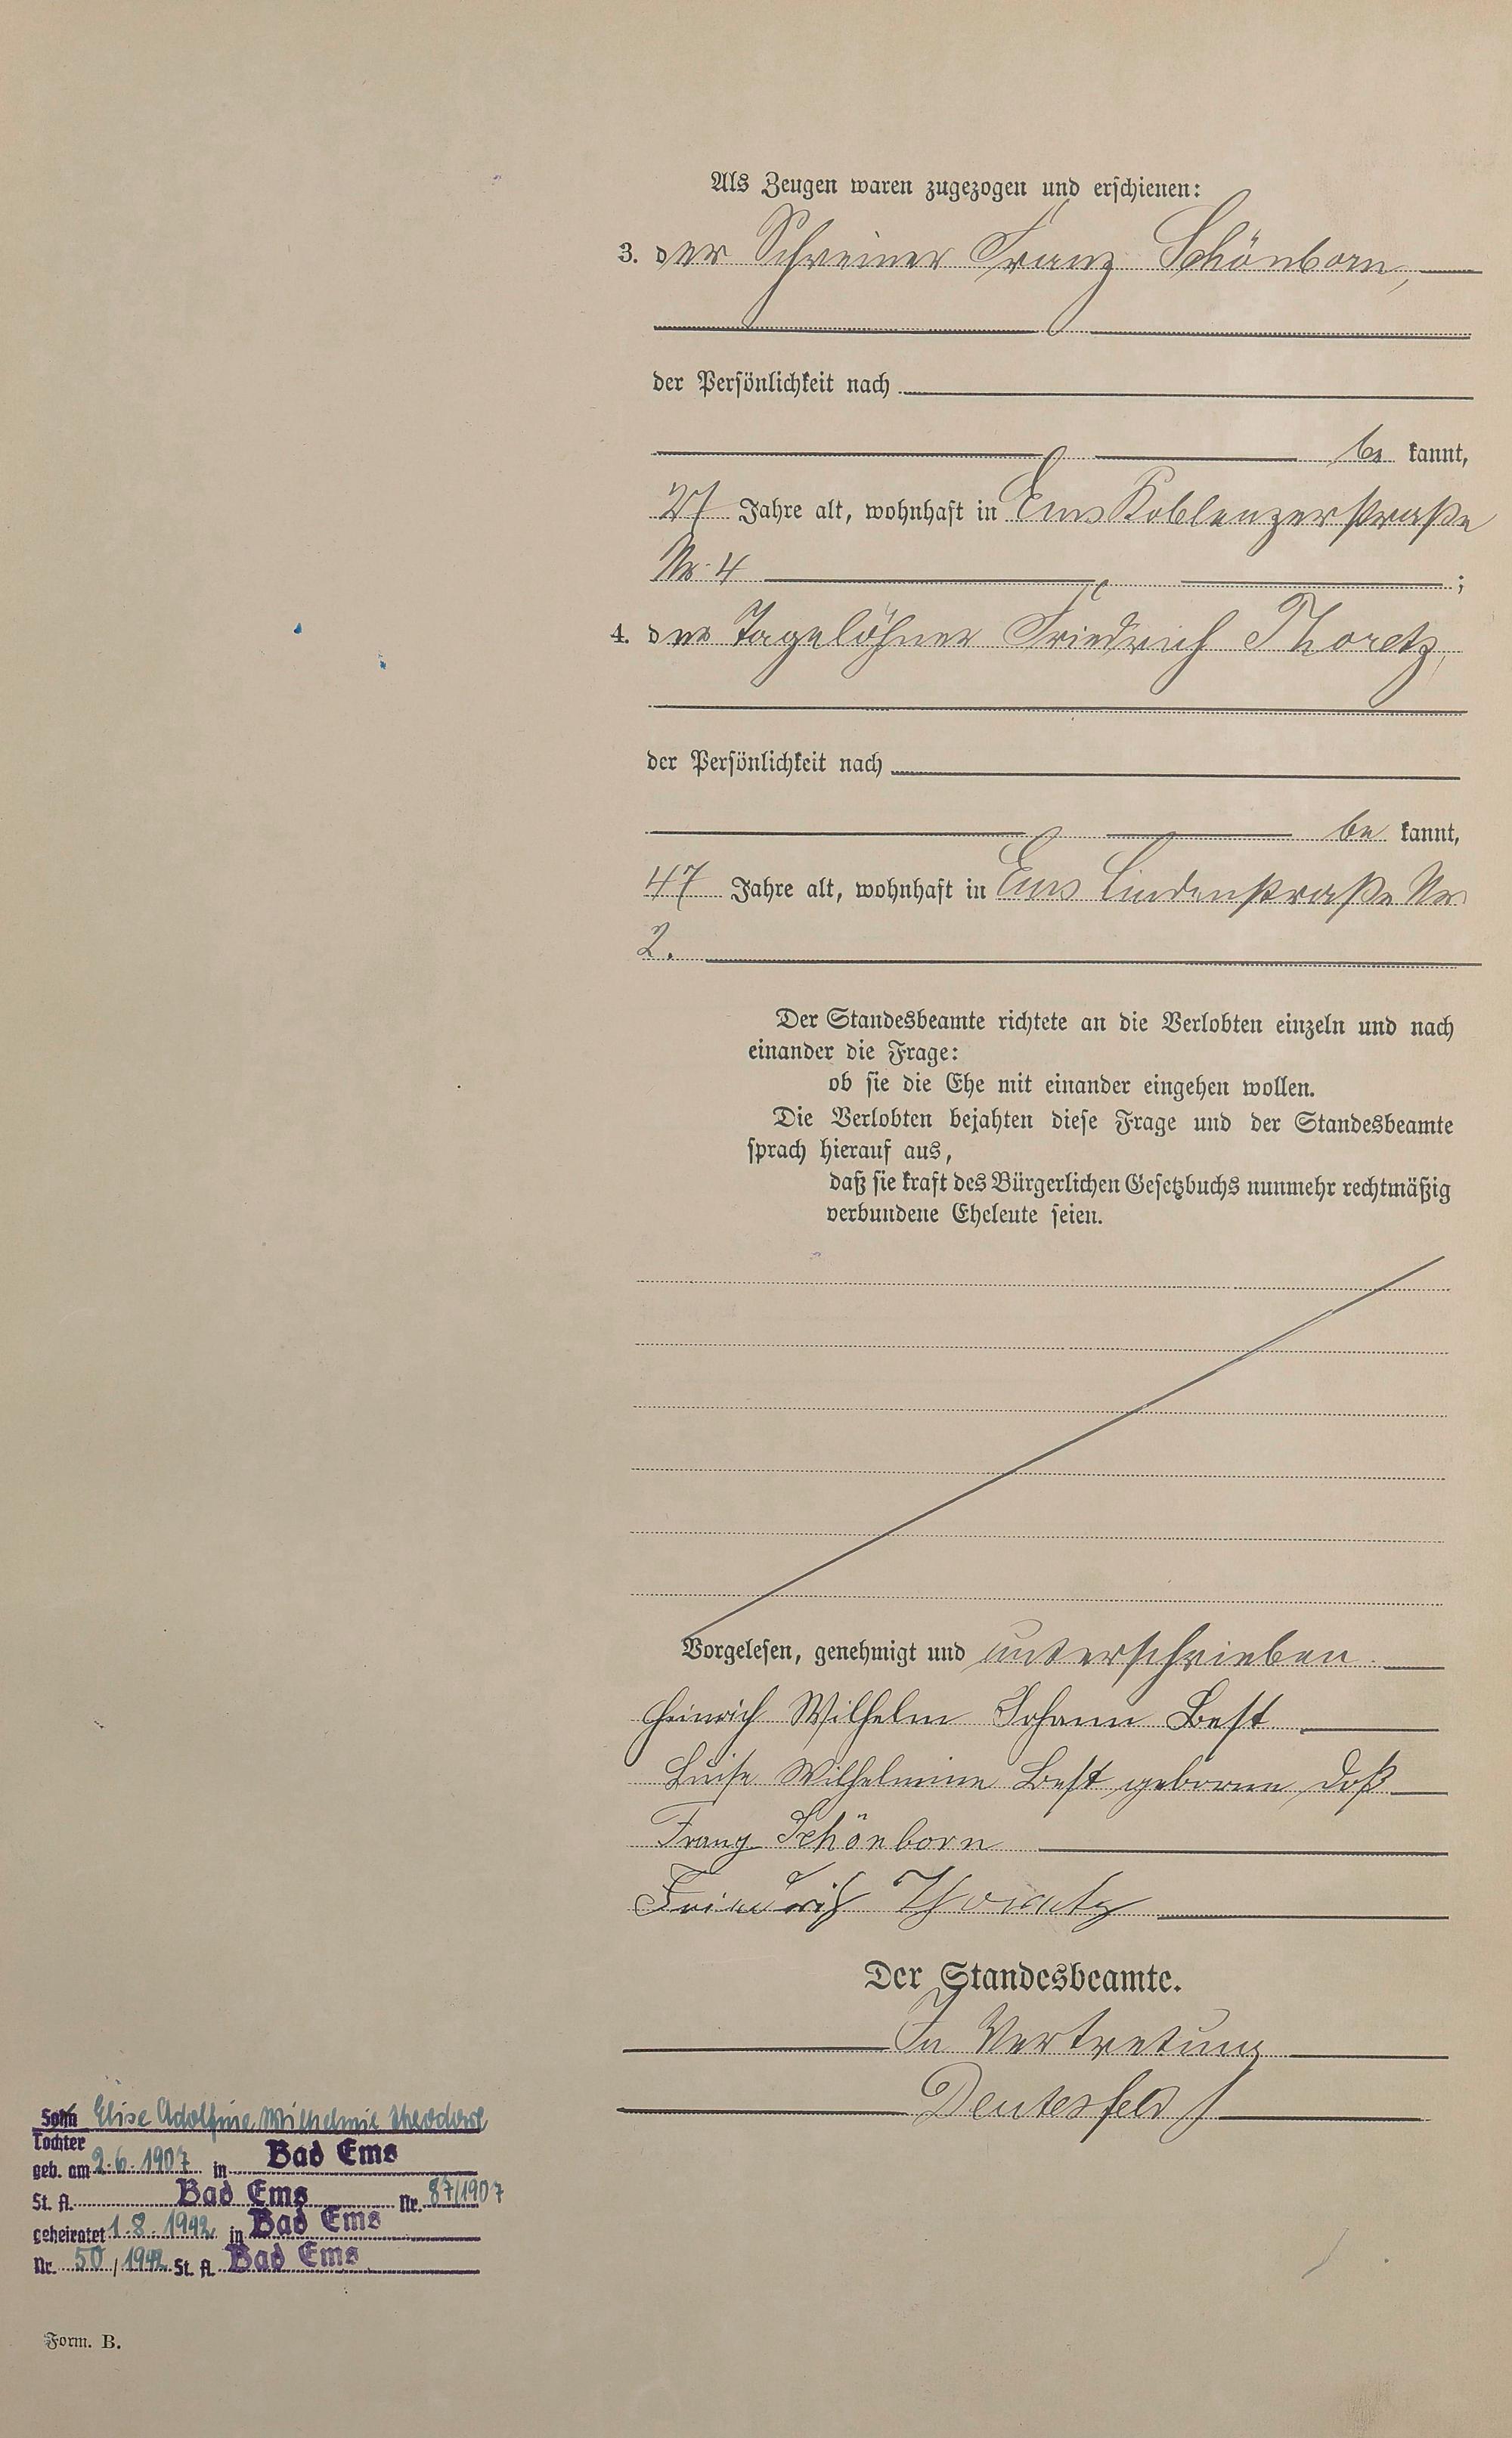 Als Zeugen waren zugezogen und erschienen:
3. der Schreiner Franz Schönborn,
der Persönlichkeit nach
be kannt,
27 Jahre alt, wohnhaft in Ems Koblenzerstraße
Nr. 4 ;
4. der Tagelöhner Friedrich Thoretz,
der Persönlichkeit nach
be kannt,
47 Jahre alt, wohnhaft in Ems Lindenstraße Nr.
2.
Der Standesbeamte richtete an die Verlobten einzeln und nach
einander die Frage:
ob sie die Ehe mit einander eingehen wollen.
Die Verlobten bejahten diese Frage und der Standesbeamte
sprach hierauf aus,
daß sie kraft des Bürgerlichen Gesetzbuchs nunmehr rechtmäßig
verbundene Eheleute seien.
Vorgelesen, genehmigt und unterschrieben.
Heinrich Wilhelm Johann Best
Luise Wilhelmine Best geborene Doß
Franz Schönborn
Friedrich Thoretz
Der Standesbeamte.
In Vertretung
Deutesfeld
Sohn Elise Adolfine Wilhelmie Theodore
Tochter
geb. am 2.6.1907 in Bad Ems
St. A. Bad Ems Nr. 87/1907
geheiratet 1.8.1942 in Bad Ems
Nr. 50/1942 St. A. Bad Ems
Form. B.